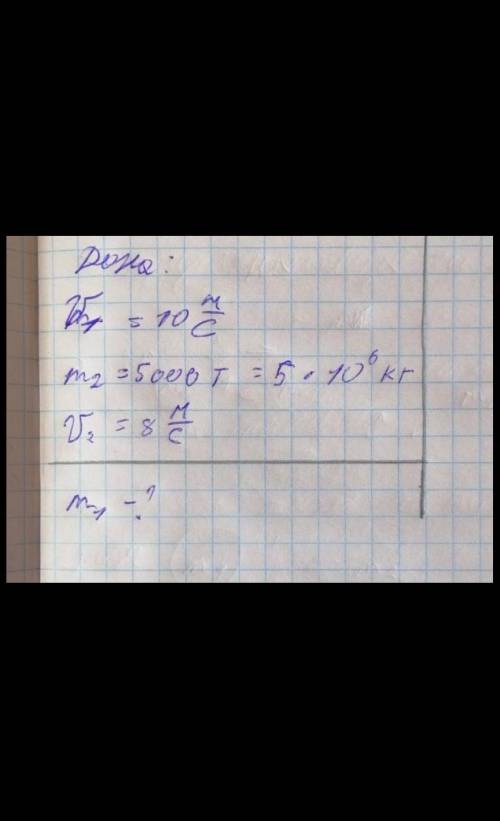 Дано:
V₁ = 10 м/с
m₂ = 5000 т = 5 · 10⁶ кг
V₂ = 8 м/с
m₁ - ?